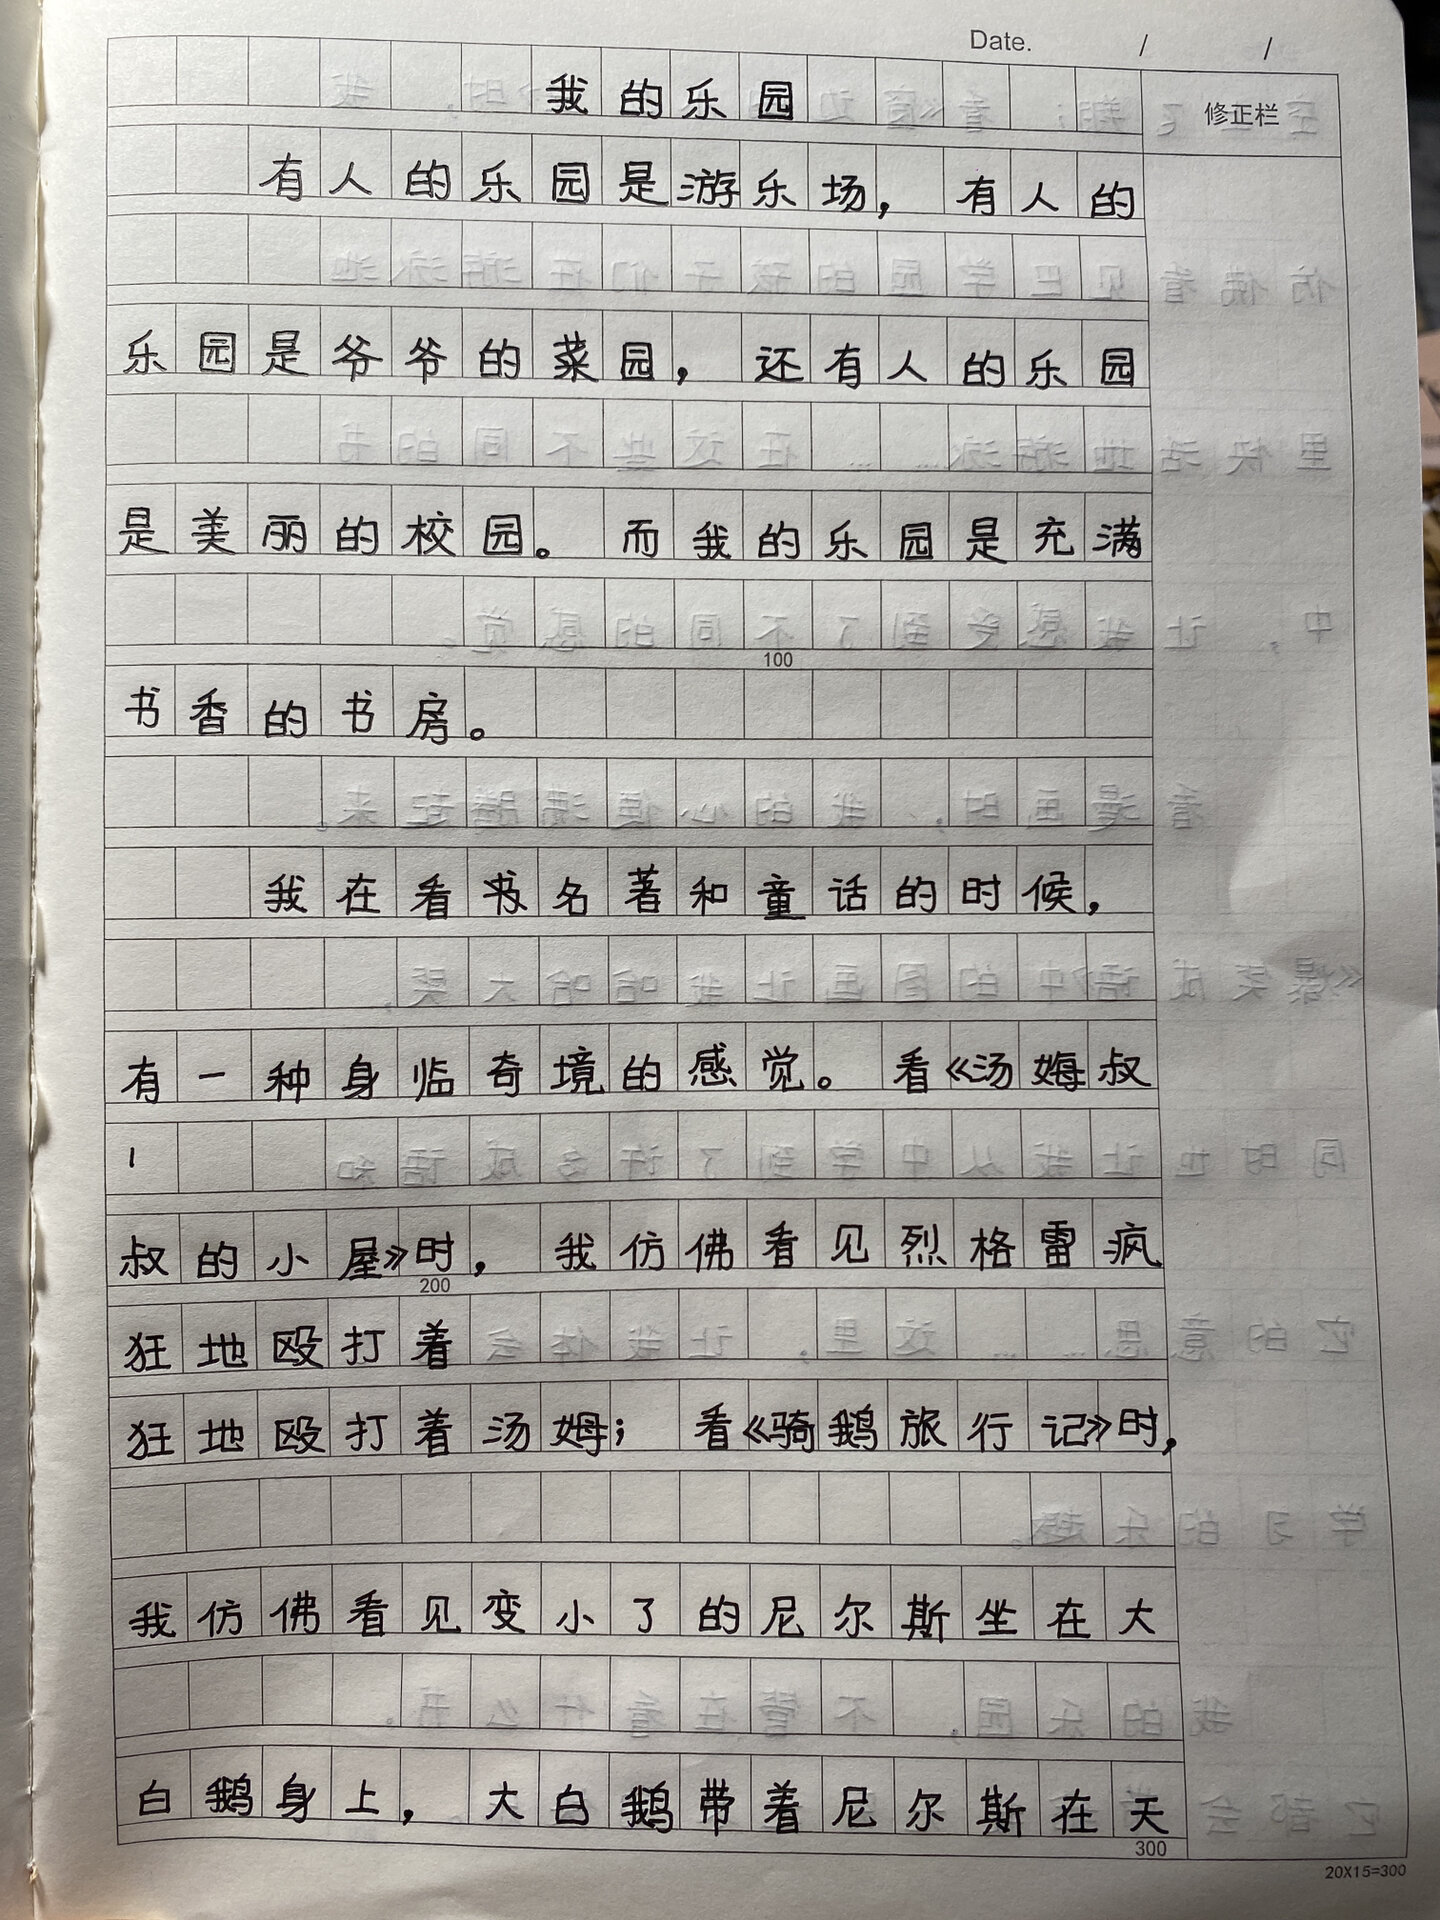 Date. / /
修正栏
我的乐园
有人的乐园是游乐场，有人的
乐园是爷爷的菜园，还有人的乐园
是美丽的校园。而我的乐园是充满
100
书香的书房。
我在看书名著和童话的时候，
有一种身临奇境的感觉。看《汤姆叔
叔的小屋》时，我仿佛看见烈格雷疯
200
狂地殴打着
狂地殴打着汤姆；看《骑鹅旅行记》时，
我仿佛看见变小了的尼尔斯坐在大
白鹅身上，大白鹅带着尼尔斯在天
300
20X15=300